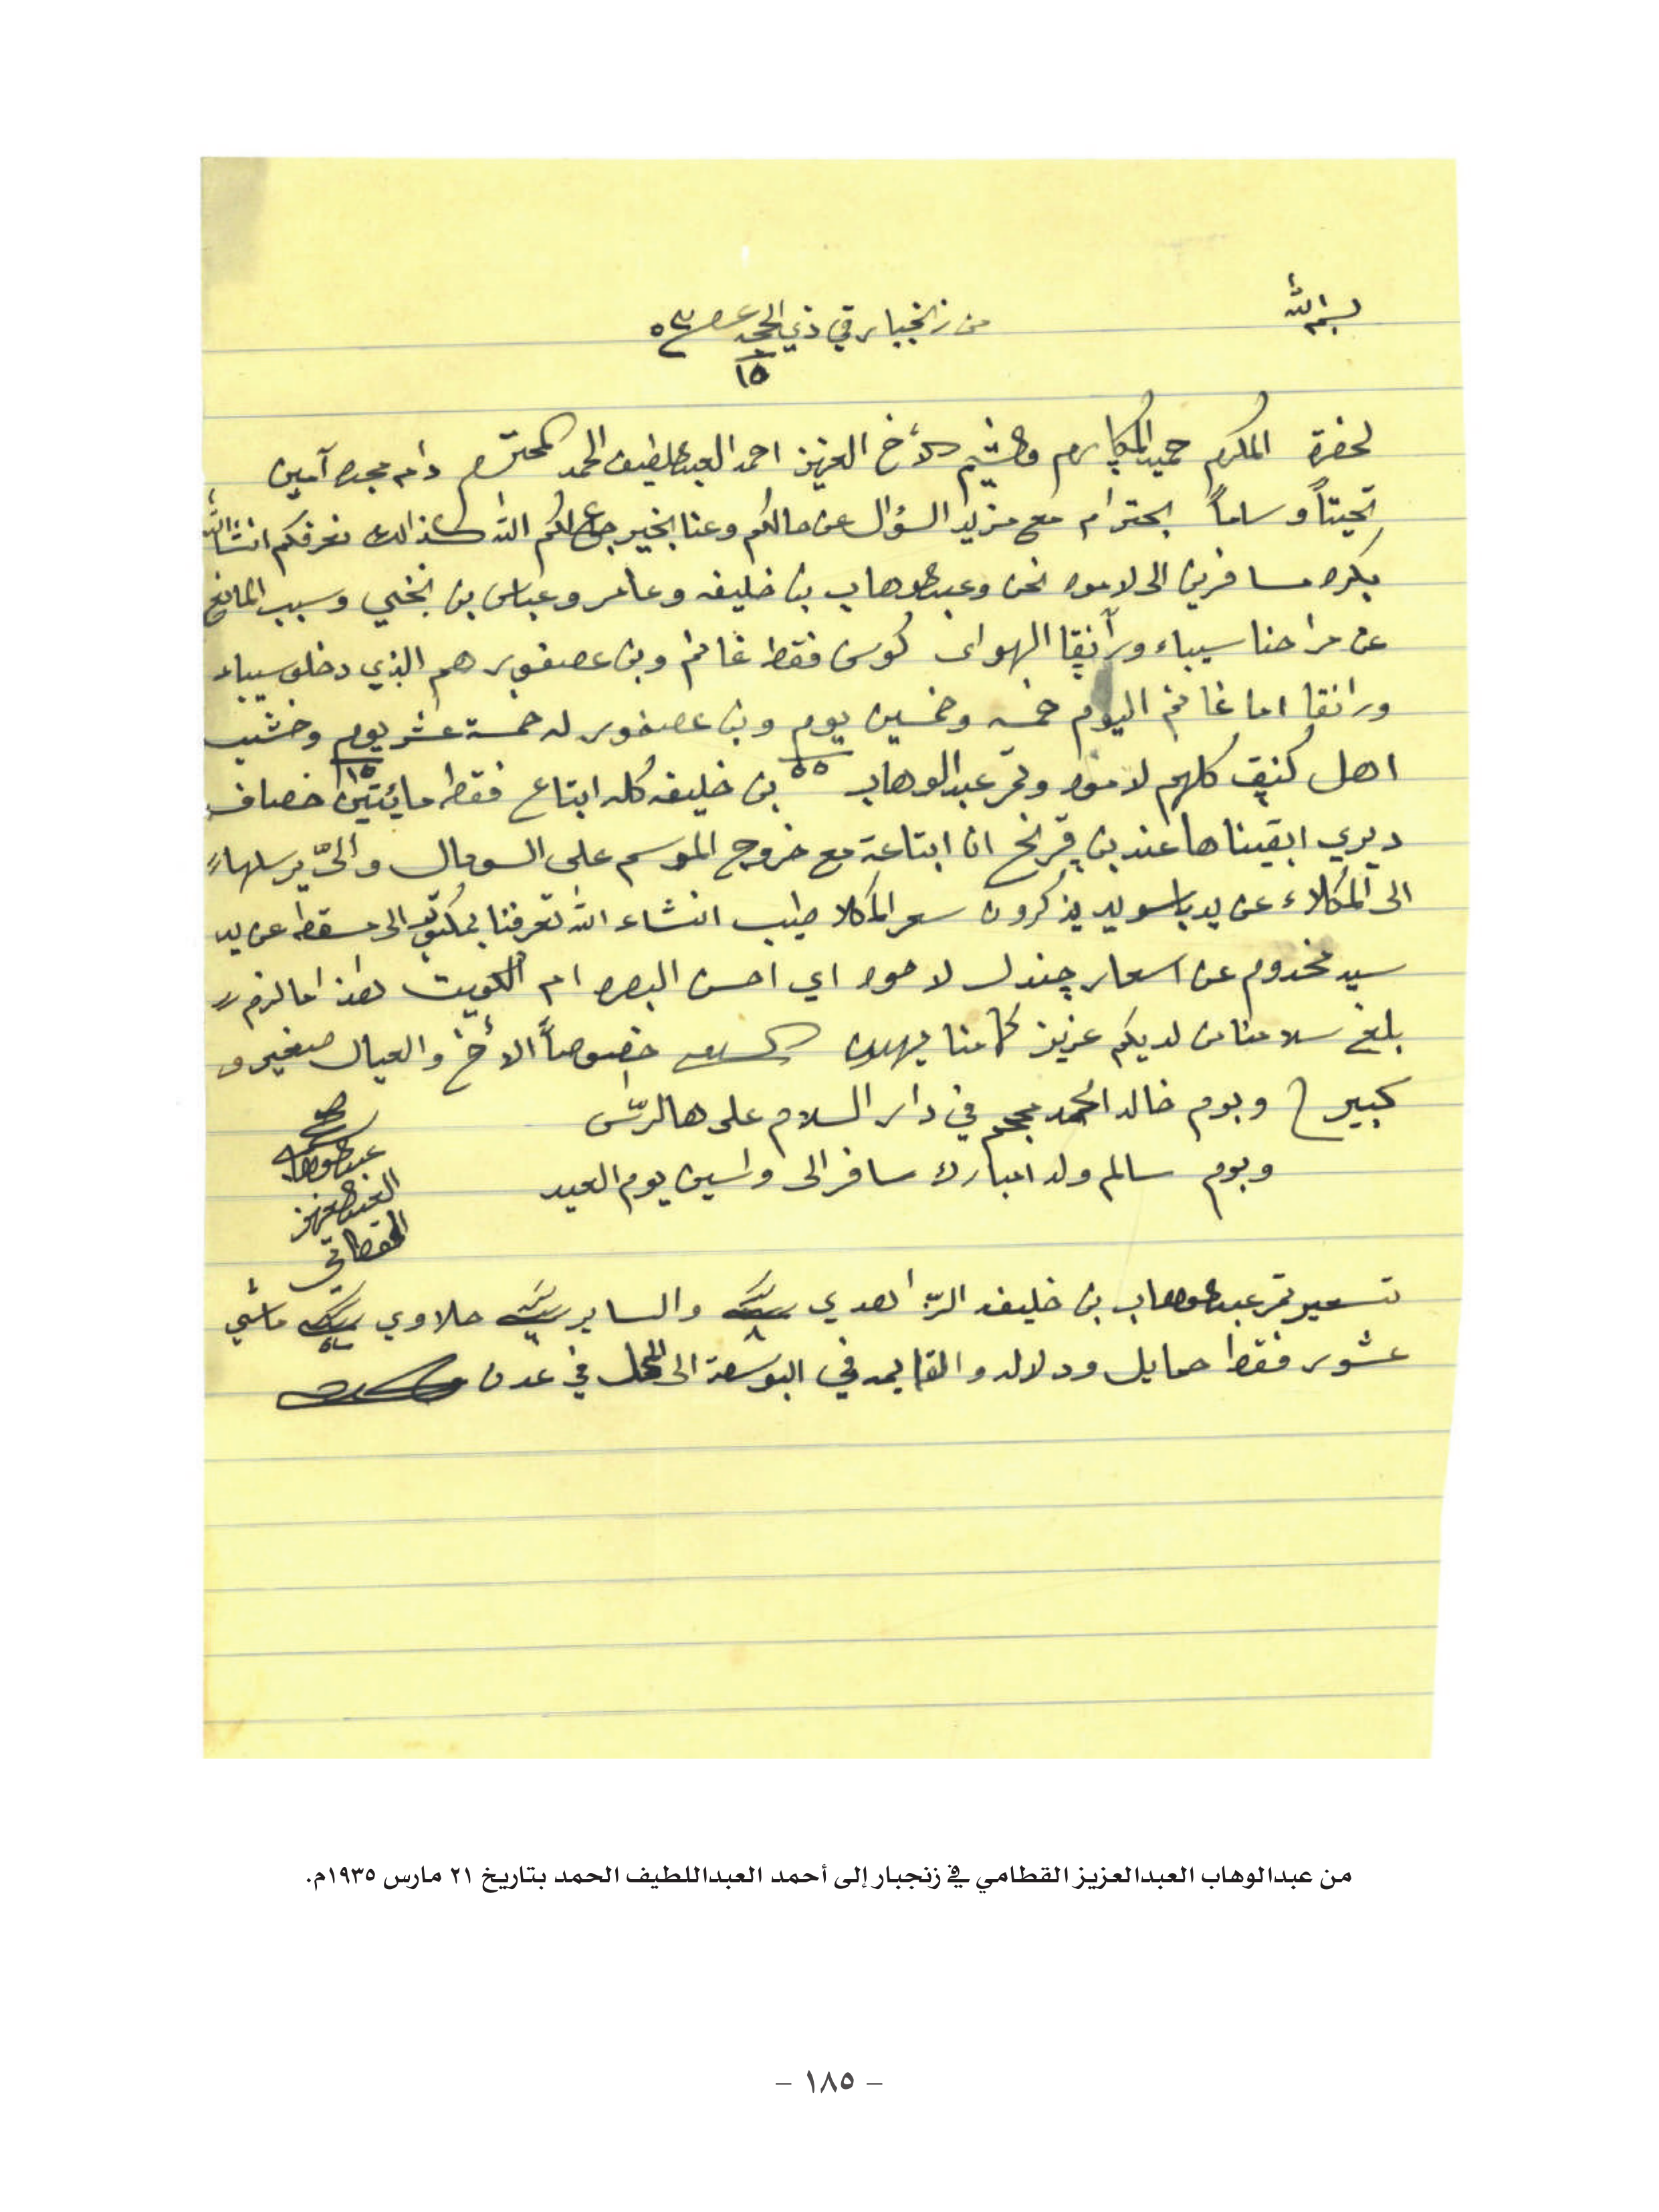 بسم الله
من زنجبار في ذي الحجه ١٥
لحضرة المكرم حميد المكارم والشيم الأخ العزيز احمد العبداللطيف الحمد المحترم دام مجده آمين
تحيتاً وساماً بحترام مع مزيد السؤال عن حالكم وعنا بخير جامع لكم الله كذالك نعرفكم انشاالله
بكره مسافرين الى لاموه نحن وعبدالوهاب بن خليفه وعامر وعباس بن نخي وسبب المانع
عن مراحنا سيباء ورانقا الهواى كوس فقط غانم وبن عصفور هم الذي دخلو سيباء
ورانقا اما غانم اليوم خمسه وخمسين يوم ٥٥ وبن عصفور له خمسة عشر يوم ١٥ وخشب
اهل كنق كلهم لاموه وتمر عبدالوهاب بن خليفه كله ابتاع فقط مائيتين خصاف
ديري ابقيناها عند بن قرنح ان ابتاعة مع خروج الموسم على السومال والىّ يرسلهاء
الى المكلاء عن يد باسويد يذكرون سعر المكلا طيب انشاء الله تعرفنا بمكتوب الى مسقط عن يد
سيد مخدوم عن اسعار چندل لاموه اي احسن البصره ام الكويت هذا مالزم
بلغ سلامنا من لديكم عزيز كما منا يهدون السلام خصوصاً الأخ والعيال صغير و
كبير وبوم خالد الحمد محمم في دار السلام على هالرّاس
وبوم سالم ولد امبارك سافر الى واسين يوم العيد
عبدالوهاب
العبدالعزيز
القطامي
تسعير تمر عبدالوهاب بن خليفه الزاهدي ٨ والساير حلاوي ماشي
عشور فقط حمايل ودلاله والقايمه في البوسطة الى المحل في عدن
من عبدالوهاب العبدالعزيز القطامي في زنجبار إلى أحمد العبداللطيف الحمد بتاريخ ٢١ مارس ١٩٣٥م.
– ١٨٥ –